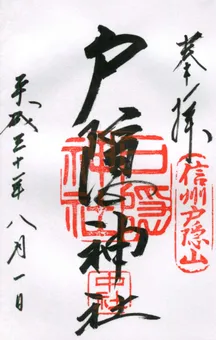 奉拝
信州戸隠山
戸隠神社
戸隠神社
中社
平成三十年八月一日